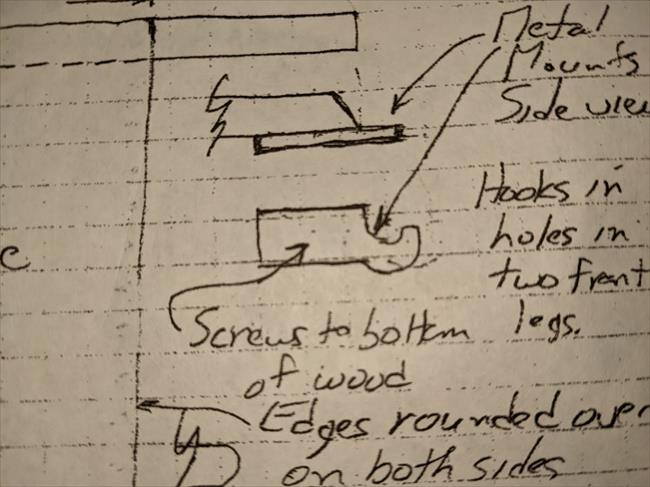 Metal
Mounts
Side view
Hooks in
holes in
two front
legs.
e
Screws to bottom
of wood
Edges rounded over
on both sides